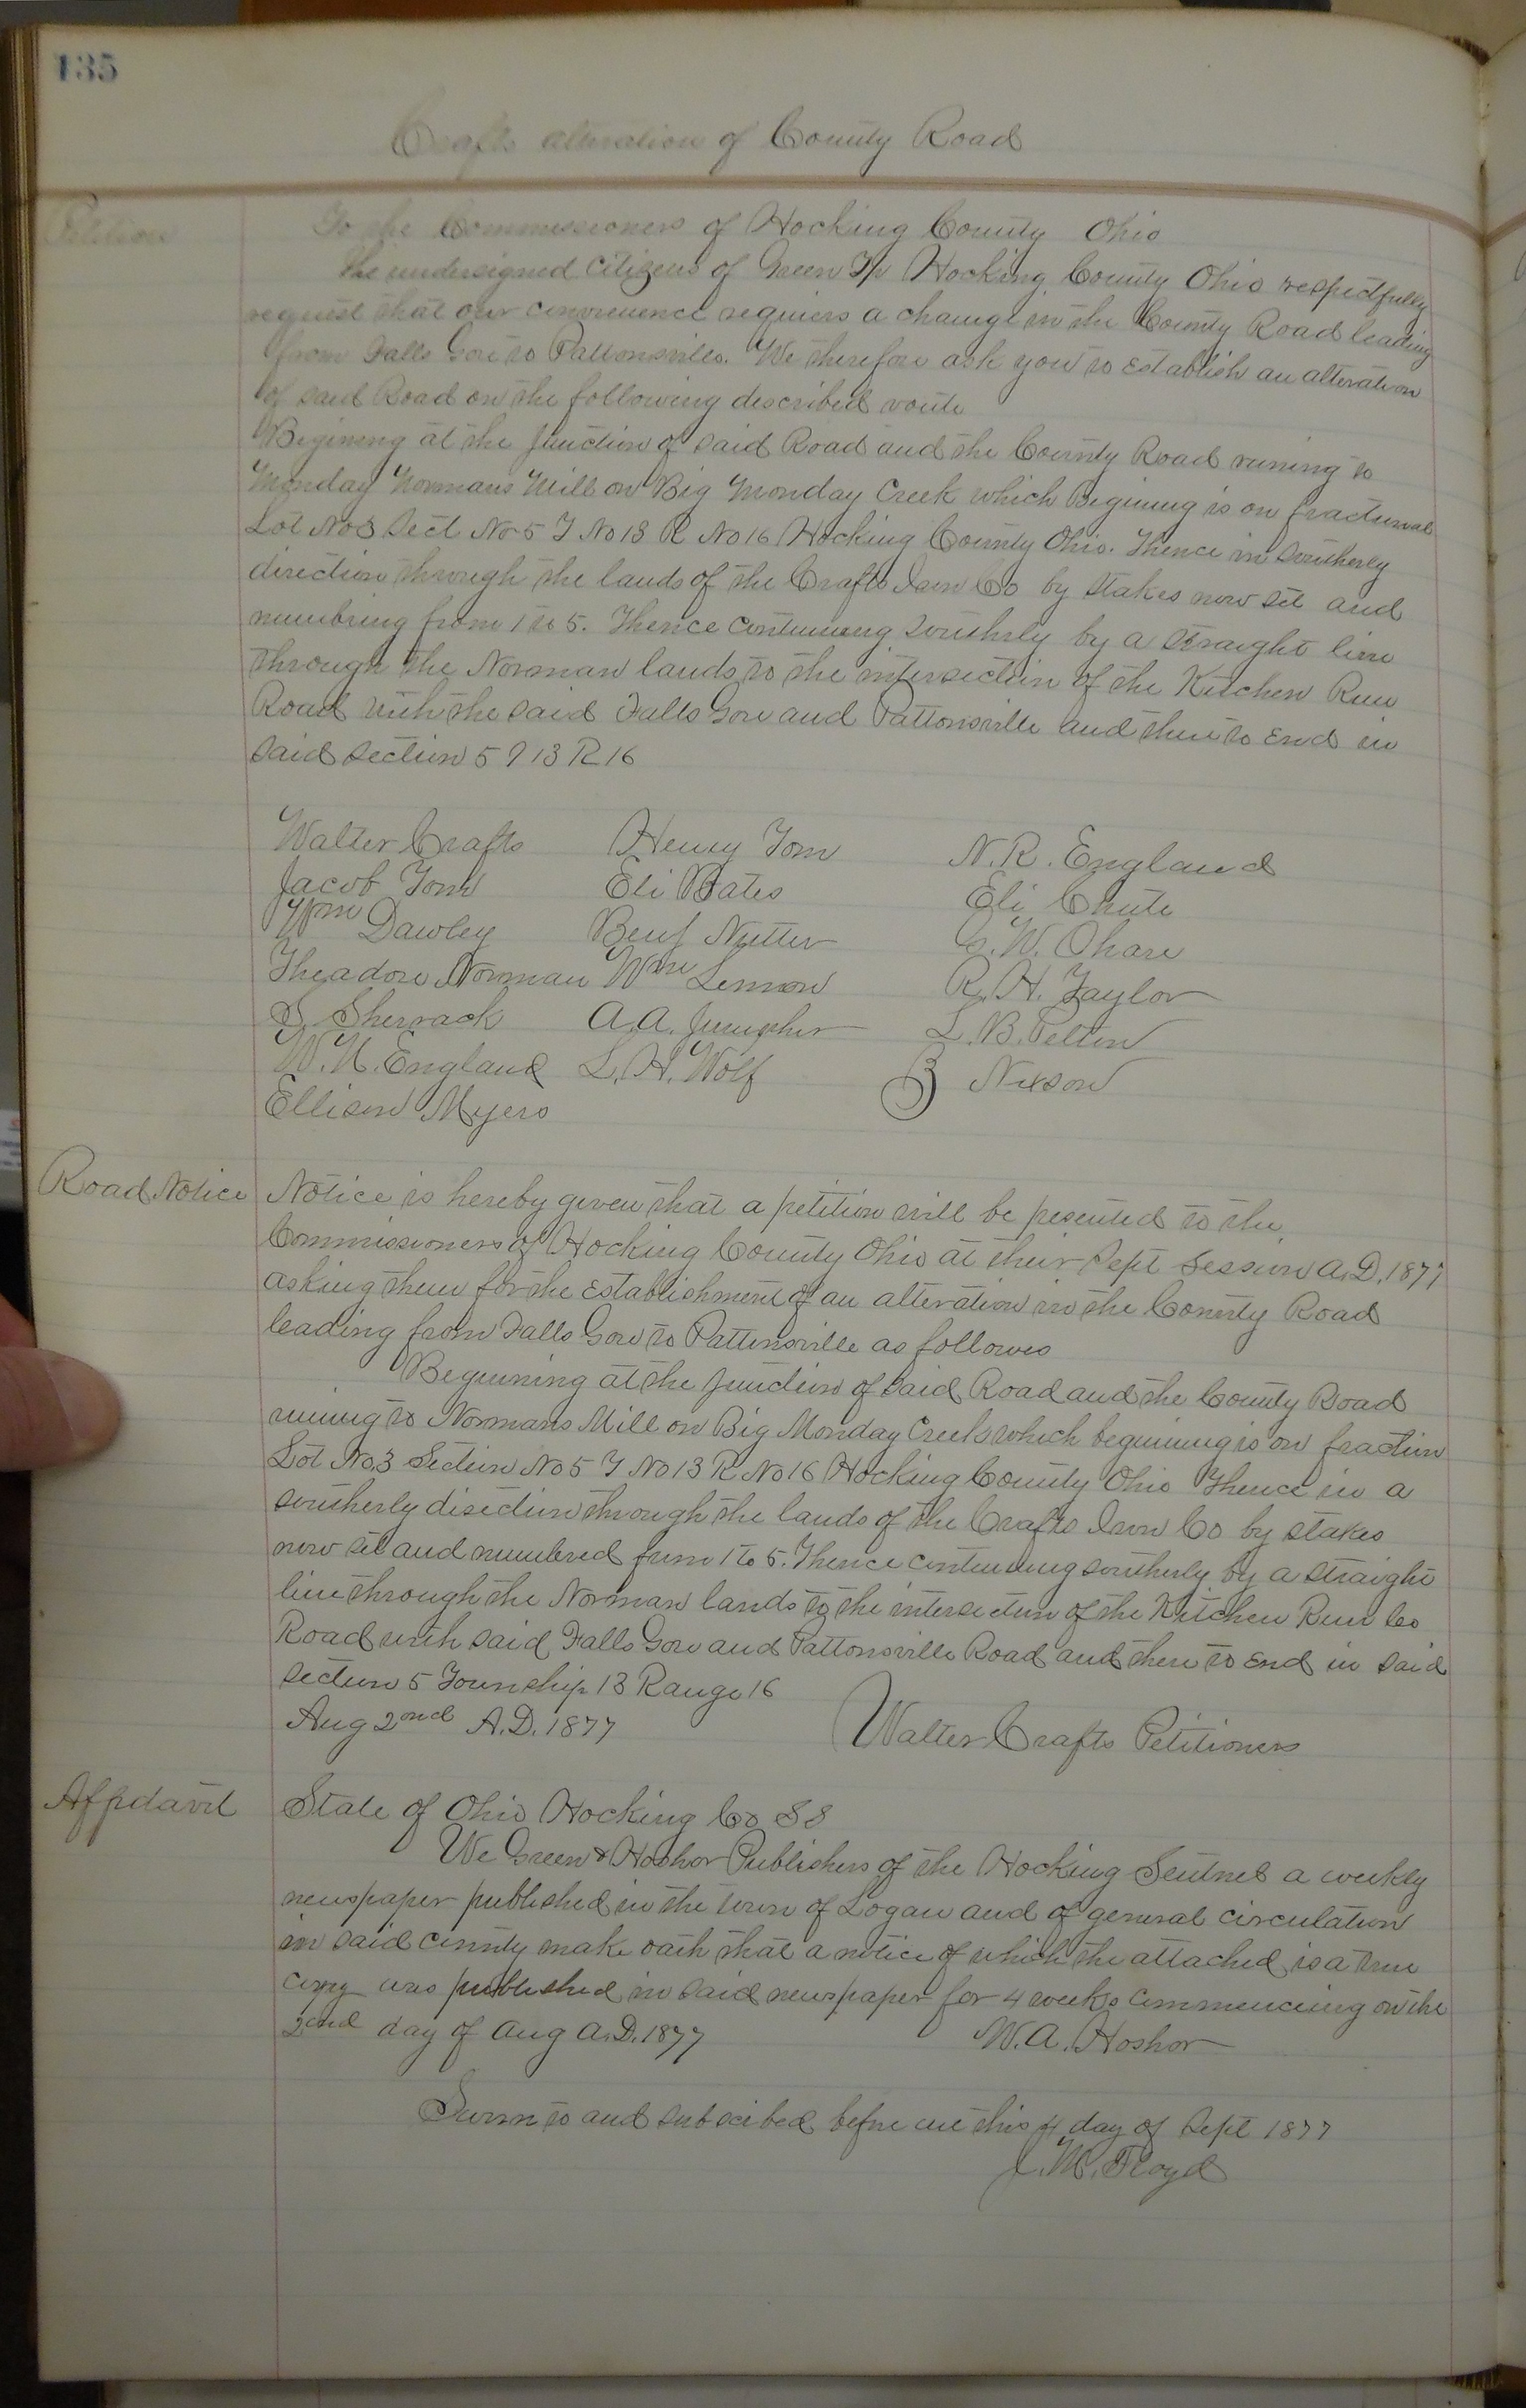 135
Crafts alteration of County Road
Petition
To the Commissioners of Hocking County Ohio
The undersigned citizens of Green Tp Hocking County Ohio respectfully
request that our convenience requiers a change in the County Road leading
from Falls Gore to Pattonsville. We therefore ask you to establish an alteration
of said Road on the following described route
Begining at the junction of said Road and the County Road runing to
Monday Normans Mill on Big Monday Creek which Begining is on fractional
Lot No 3 Sect No 5 T No 13 R No 16 Hocking County Ohio. Thence in Southerly
direction through the lands of the Crafts Iron Co by stakes now set and
numbring from 1 to 5. Thence continueing southrly by a straight line
through the Norman lands to the intersection of the Kitchen Run
Road with the said Falls Gore and Pattonsville and there to End in
said section 5 T 13 R 16
Walter Crafts Henry Tom N. R. England
Jacob Tom Eli Bates Eli Chute
Wm Dawley Benj Nutter G. W. Ohare
Theadore Norman Wm Lemon R. H. Taylor
S Sherrack A. A. L. B. Pelton
W. N. England L. H. Wolf B Nixson
Ellison Myers
Road Notice
Notice is hereby given that a petition will be pesented to the
Commissioners of Hocking County Ohio at their Sept Session A.D. 1877
asking them for the Establishment of an alteration in the County Road
leading from Falls Gore to Pattonsville as follows
Beginning at the junction of Said Road and the County Road
runing to Normans Mill on Big Monday Creek which beginning is on fraction
Lot No 3 Section No 5 T No 13 R No 16 Hocking County Ohio Thence in a
southerly disection through the lands of the Crafts Iron Co by stakes
now set and numbered from 1 to 5. Thence continueing southerly by a straight
line through the Norman lands to the intersection of the Kitchen Run Co
Road with said Falls Gore and Pattonsville Road and there to End in said
section 5 Township 13 Range 16
Aug 2nd A.D. 1877 Walter Crafts Petitioners
Affidavit
State of Ohio Hocking Co SS
We Green & Hoshor Publishers of the Hocking Sentnel a weekly
newspaper published in the town of Logan and of general circulation
in said county make oath that a notice of which the attached is a true
copy was published in said newspaper for 4 weeks commenceing on the
2end day of Aug A.D. 1877 W. A. Hoshor
Sworn to and subscibed before me this 4 day of Sept 1877
J. M. Floyd